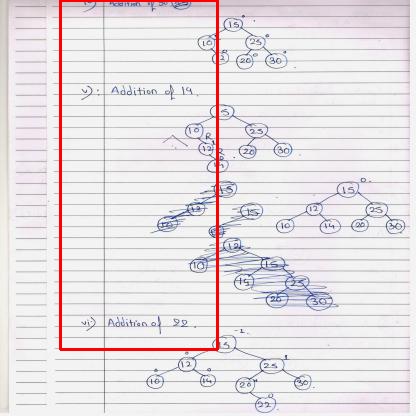 iv) Addition of 30
15
10 25
12 20 30
v): Addition of 14.
15
10 R 25
12 20 30
15
12 15
15
12 25
10 14 20 30
12
10 15
15 25
20 30
vi) Addition of 22.
15 -1
12 25 1
10 14 20 30
22